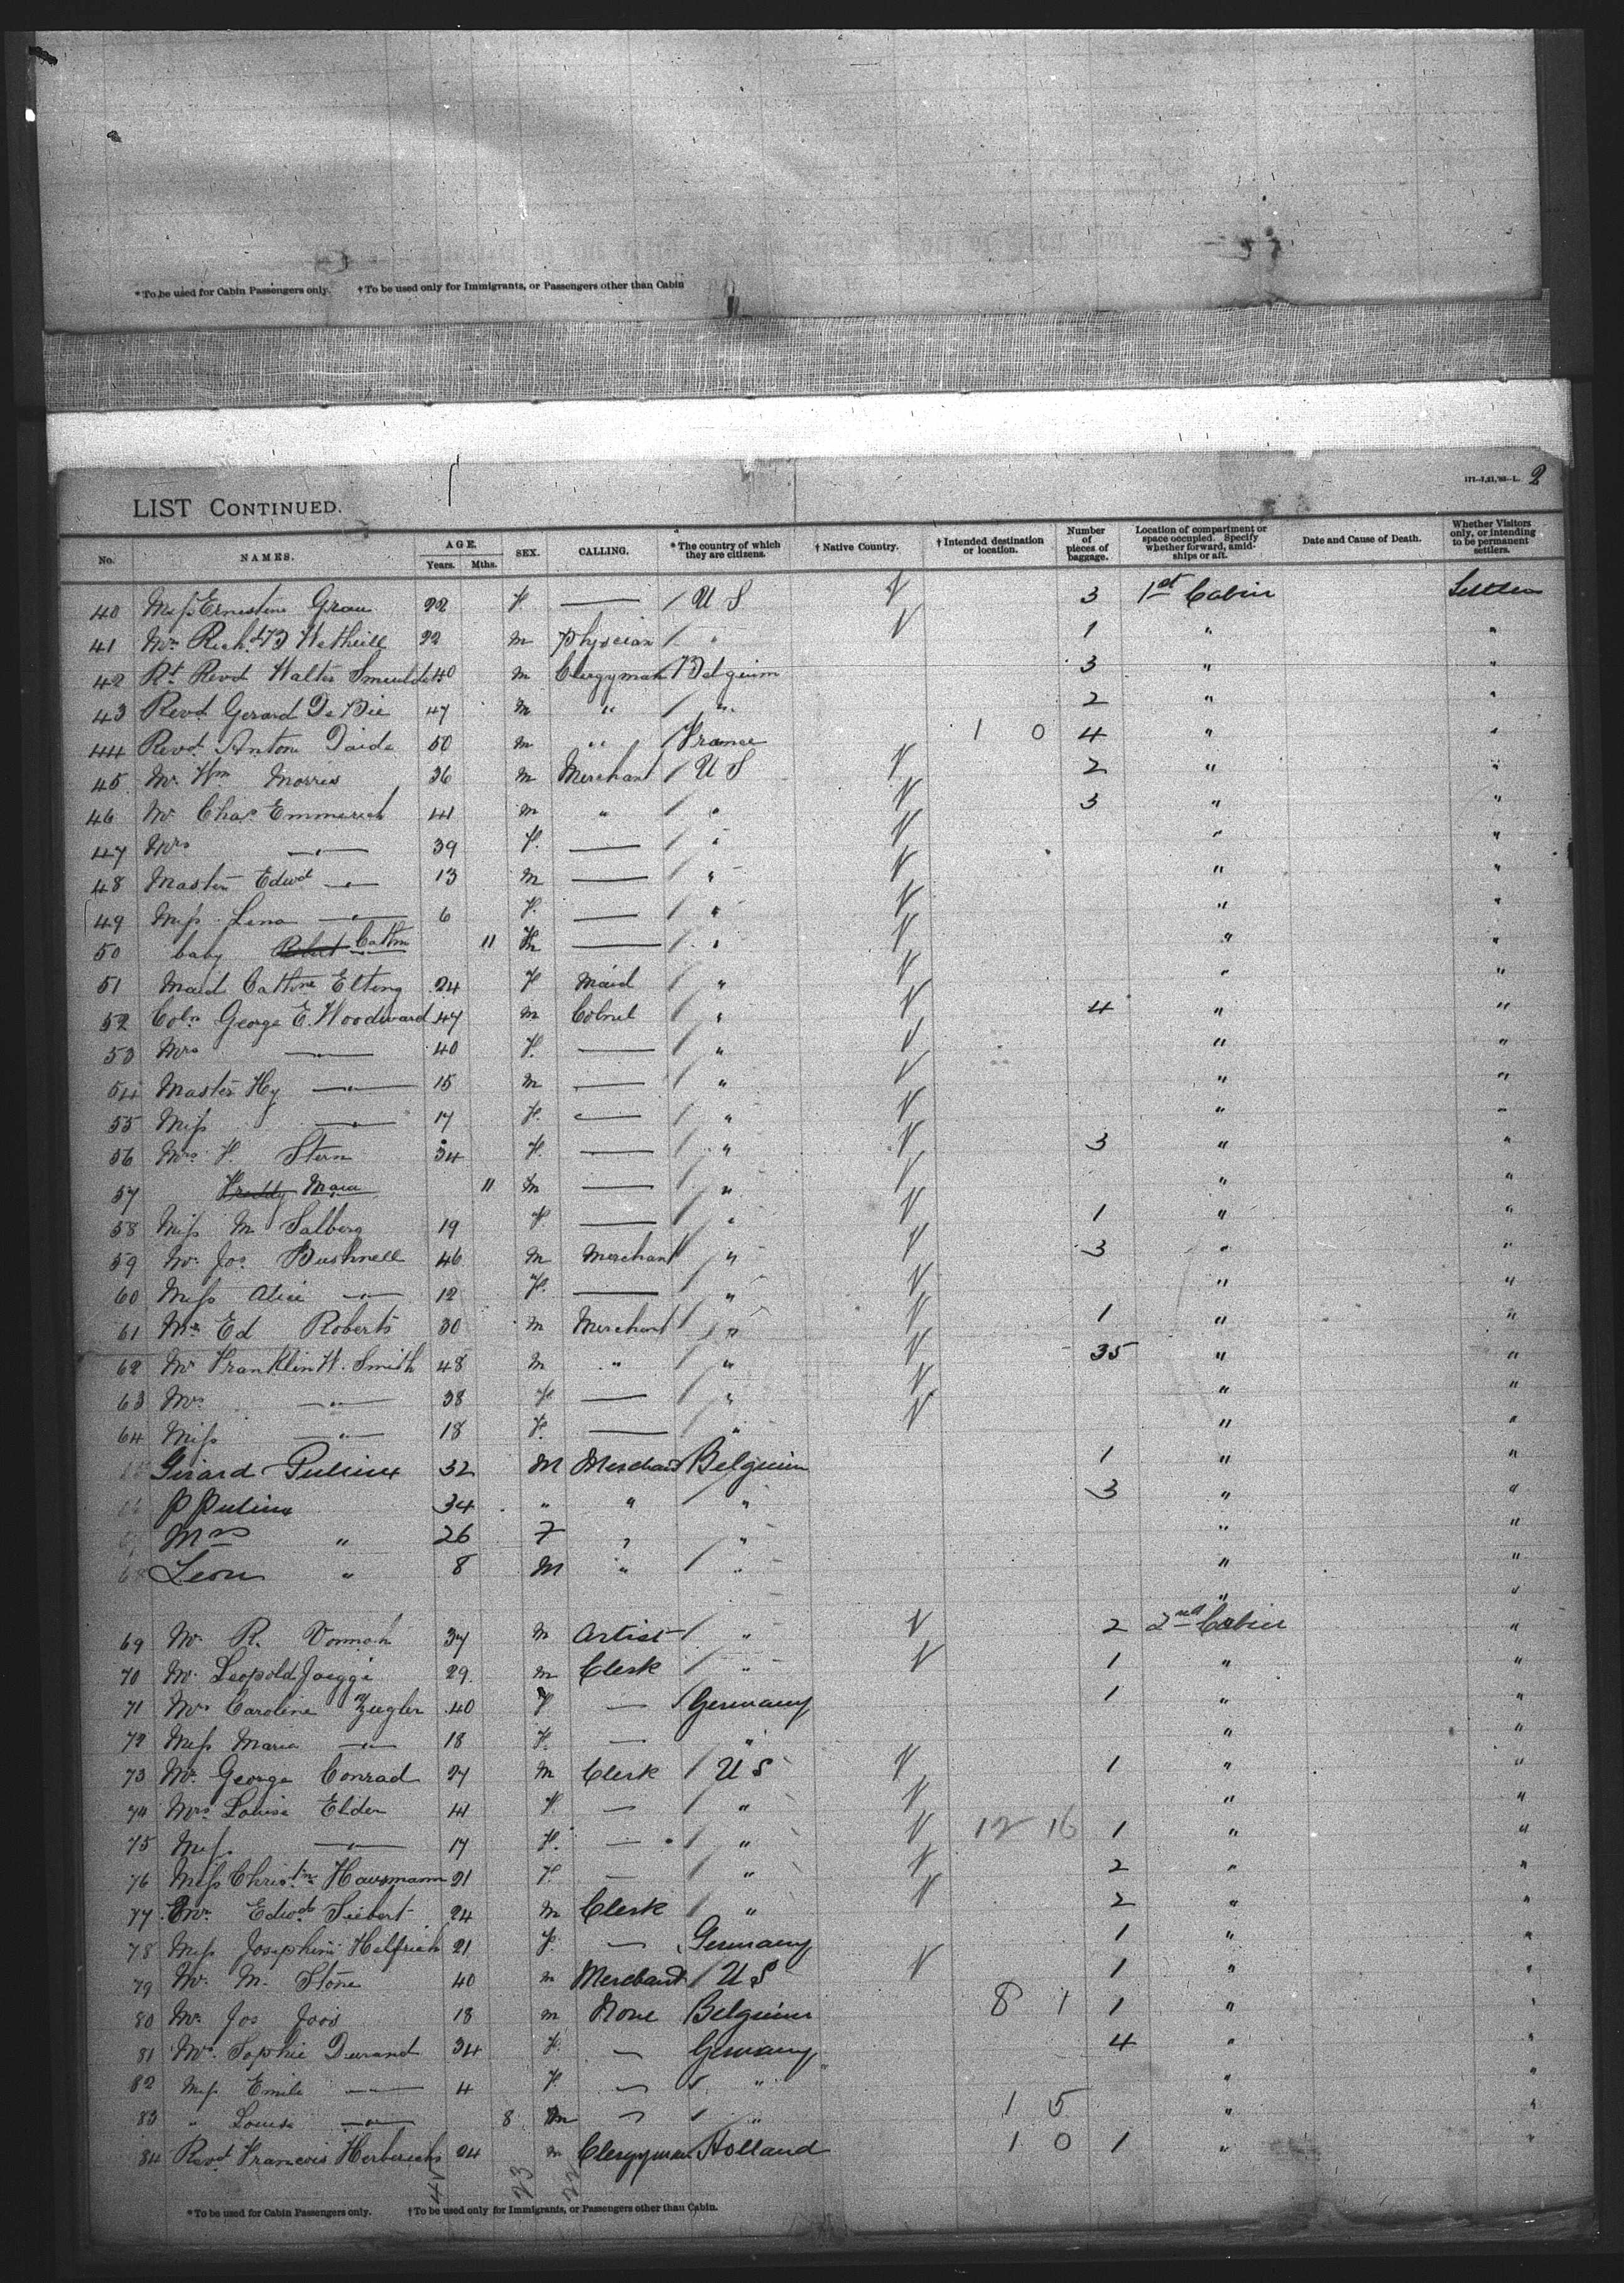 *To be used for Cabin Passengers only. †To be used only for Immigrants, or Passengers other than Cabin
171-7,21,'88-L. 2
LIST CONTINUED.
No. NAMES. AGE. Years. Mths. SEX. CALLING. *The country of which they are citizens. †Native Country. †Intended destination or location. Number of pieces of baggage. Location of compartment or space occupied. Specify whether forward, amidships or aft. Date and Cause of Death. Whether Visitors only, or intending to be permanent settlers.
40 Miss Ernestine Grau 22 F — / U S V 3 1st Cabin
41 Mr Richd B Wetherill 22 m Physician / " V 1 " "
42 Rt Revd Walter Smeulders 40 m Clergyman Belgium 3 " "
43 Revd Gerard De Bie 47 m " / " 2 " "
44 Revd Antoni 50 m " / France 1 0 4 " "
45 Mr Wm Morris 36 m Merchant / U S V 2 " "
46 Mr Chas Emmerich 41 m " / " V 3 " "
47 Mrs —"— 39 F. — / " V " "
48 Master Edwd —"— 13 m — / " V " "
49 Miss Lena —"— 6 F. — / " V " "
50 baby Robert Cathn 11 — / " V " "
51 Maid Cathne Elting 24 F Maid / " V " "
52 Coln George E. Woodward 47 m Colonel / " V 4 " "
53 Mrs —"— 40 F. — / " V " "
54 Master Hy —"— 15 m — / " V " "
55 Miss —"— 17 F. — / " V " "
56 Mrs F. Stern 34 F. — / " V 3 " "
57 Freddy Mara 11 m — / " V " "
58 Miss M Salberg 19 F — / " V 1 " "
59 Mr Jos. Bushnell 46 m Merchant / " V 3 " "
60 Miss Alice —"— 12 F. — / " V " "
61 Mr Ed Roberts 30 m Merchant / " V 1 " "
62 Mr Franklin W. Smith 48 m " / " V 35 " "
63 Mrs —"— 38 F — / " V " "
64 Miss —"— 18 F. — / " V " "
Girard Pulinx 32 M Merchant Belgium 1 " "
P Pulinx 34 " " / " 3 " "
Mrs " 26 F " " " "
68 Leon " 8 M " / " " "
" "
69 Mr R. Vonnoh 34 m Artist / " V 2 2nd Cabin "
70 Mr Leopold Jaeggi 29 m Clerk / " V 1 " "
71 Mrs Caroline Ziegler 40 F — / Germany 1 " "
72 Miss Maria —"— 18 F. — " " "
73 Mr George Conrad 27 m Clerk / U S V 1 " "
74 Mrs Louise Elder 41 F — / " V " "
75 Miss —"— 17 F. — / " V 12 16 1 " "
76 Miss Christne Hausmann 21 F. — / " V 2 " "
77 Mr Edwd Siebert 24 m Clerk / " V 2 " "
78 Miss Josephine Helfrich 21 F. — Germany 1 " "
79 Mr M. Stone 40 m Merchant / U S V 1 " "
80 Mr Jos Joos 18 m None Belgium 8 1 1 " "
81 Mrs Sophie Durand 34 F. — Germany 4 " "
82 Miss Emile —"— 4 F. — / " " "
83 " Louise —"— 8 m — / " 1 5 " "
84 Revd Francois Herberichs 24 m Clergyman Holland 1 0 1 " "
23 22
*To be used for Cabin Passengers only. †To be used only for Immigrants, or Passengers other than Cabin.